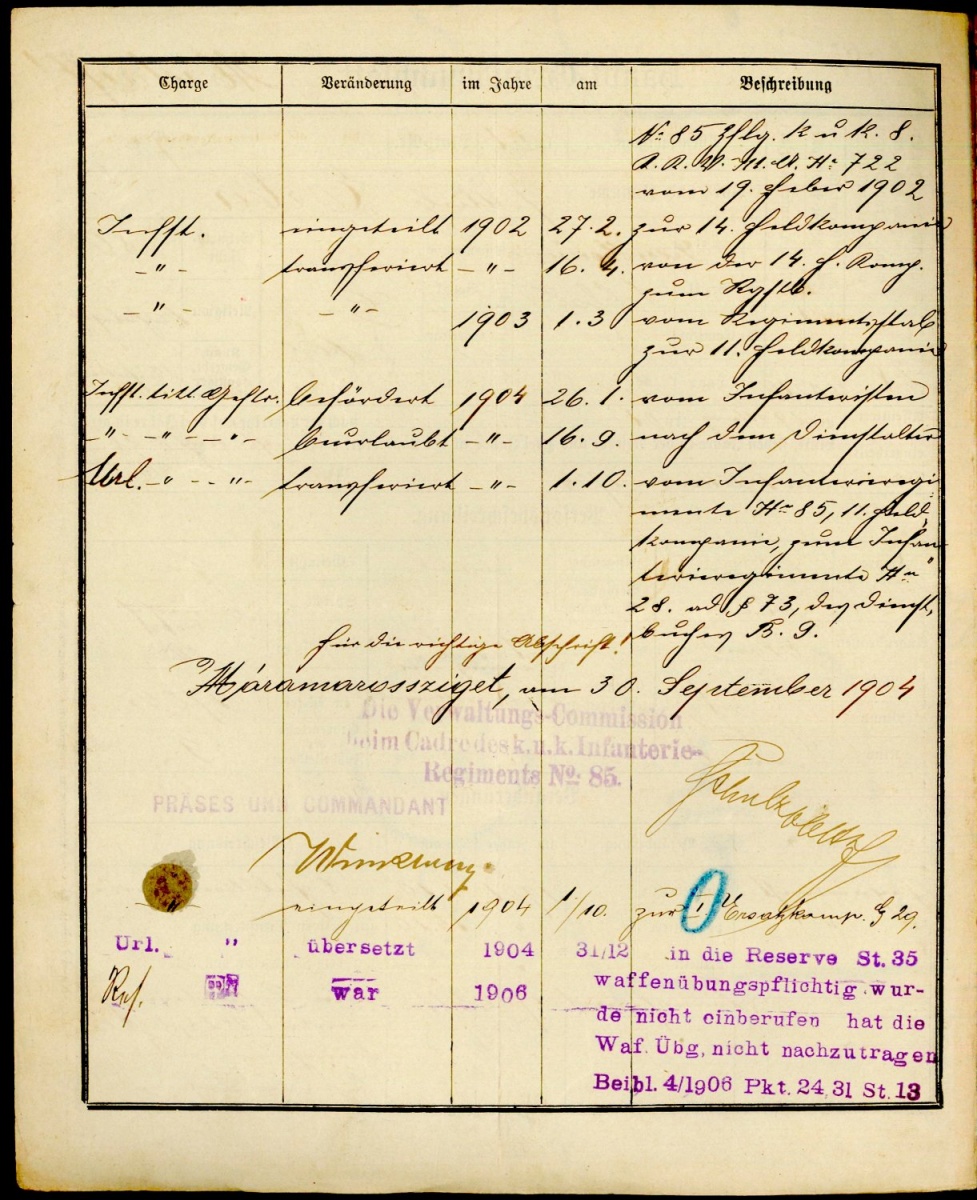 Charge Veränderung im Jahre am Beschreibung
No 85 zflg. K u K. 8.
722
vom 19. Feber 1902
Infst. eingeteilt 1902 27.2. zur 14. Feldkompanie
–"– transferiert –"– 16. 4. von der 14. F. Komp.
zum Rgstb.
–"– –"– 1903 1.3 vom Regimentsstab
zur 11. Feldkompanie
Infst. titl. Geftr. befördert 1904 26.1. vom Infanteristen
–"– –"– –"– beurlaubt –"– 16.9. nach dem Dienstalter
Url. –"– –"– transferiert –"– 1.10. vom Infanterieregi
mente No 85, 11. Feld
kompanie, zum Infan
terieregimente No
28. ad § 73, des Dienst
buches B. 9.
Für die richtige Abschrift!
Máramarossziget, am 30. September 1904
Die Verwaltungs-Commission
beim Cadre des k.u.k. Infanterie-
Regiments No. 85.
PRÄSES UND COMMANDANT
" eingeteilt 1904 1/10. zur I Ersatzkomp. G 29.
Url. " übersetzt 1904 31/12 in die Reserve St. 35
Res. war 1906 waffenübungspflichtig wur-
de nicht einberufen hat die
Waf. Übg, nicht nachzutragen
Beibl. 4/1906 Pkt. 24,31 St. 13